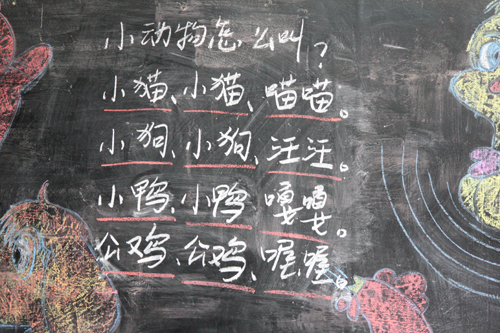 小动物怎么叫？
小猫、小猫、喵喵。
小狗、小狗、汪汪。
小鸭、小鸭 嘎嘎。
公鸡、公鸡、喔喔。